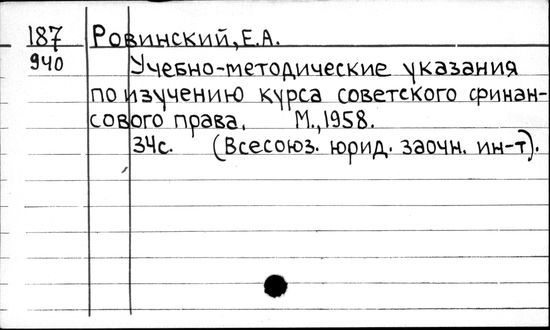 187 Ровинский, Е.А.
940 Учебно-методические указания
по изучению курса советского финан-
сового права. М., 1958.
34с. (Всесоюз. юрид. заочн. ин-т).